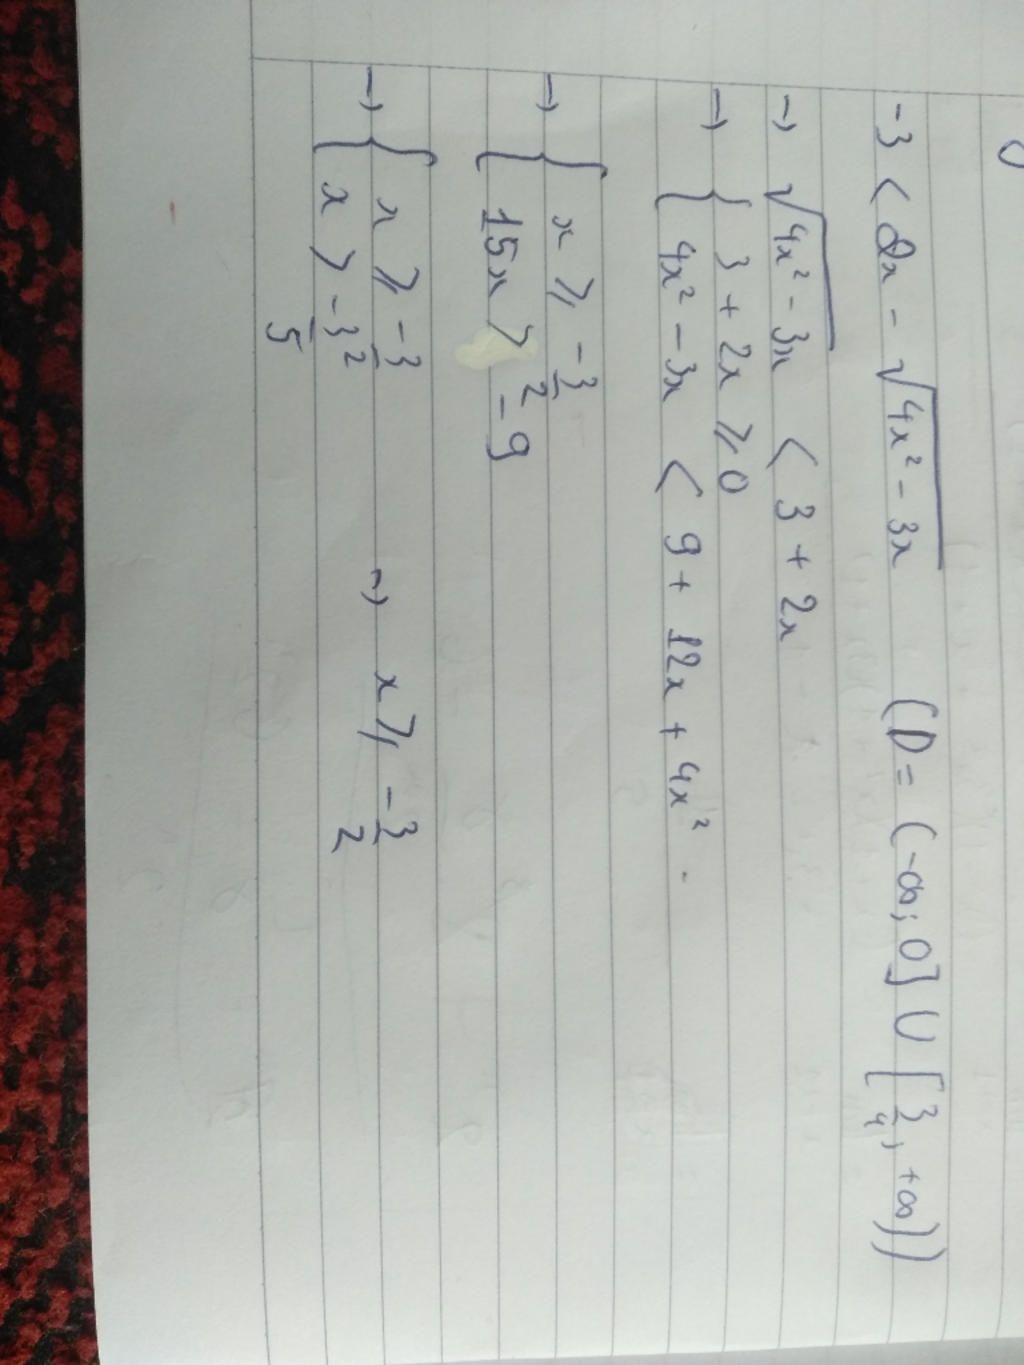 -3 < 2x - √(4x² - 3x) (D = (-∞; 0] ∪ [3/4, +∞))
→ √(4x² - 3x) < 3 + 2x
→ { 3 + 2x ⩾ 0
{ 4x² - 3x < 9 + 12x + 4x²
→ { x ⩾ -3/2
{ 15x > -9
→ { x ⩾ -3/2 → x ⩾ -3/2
{ x > -3/5